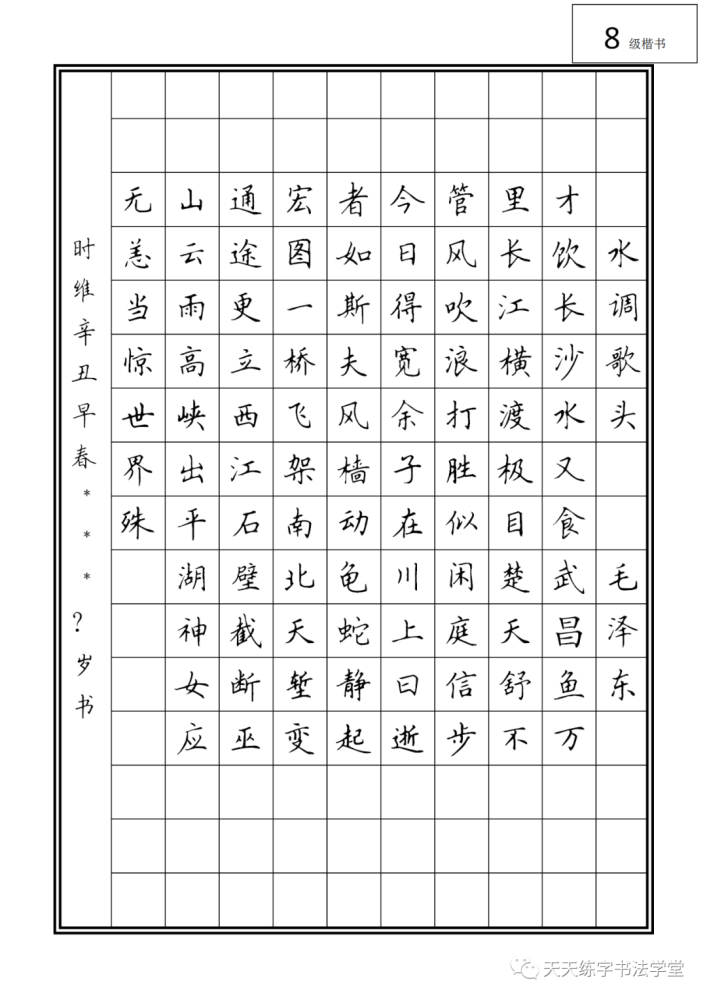 8 级楷书
水调歌头 毛泽东
才饮长沙水又食武昌鱼万
里长江横渡极目楚天舒不
管风吹浪打胜似闲庭信步
今日得宽余子在川上曰逝
者如斯夫风樯动龟蛇静起
宏图一桥飞架南北天堑变
通途更立西江石壁截断巫
山云雨高峡出平湖神女应
无恙当惊世界殊
时维辛丑早春***?岁书
天天练字书法学堂